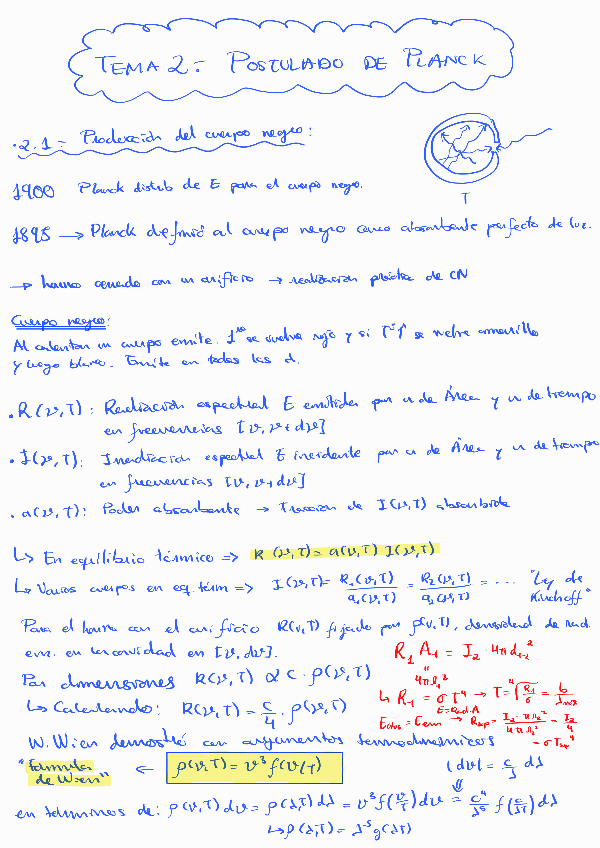 TEMA 2: POSTULADO DE PLANCK
• 2.1 = Radiación del cuerpo negro:
T
1900 Planck distrib de E para el cuerpo negro.
1898 → Planck definió al cuerpo negro como absorbente perfecto de luz.
→ horno cerrado con un orificio → realización práctica de CN
Cuerpo negro:
Al calentar un cuerpo emite. 1º se vuelve rojo y si T↑ se vuelve amarillo
y luego blanco. Emite en todas las λ.
• R(ν,T): Radiación espectral E emitida por u de Área y u de tiempo
en frecuencias [ν, ν+dν]
• I(ν,T): Irradiación espectral E incidente por u de Área y u de tiempo
en frecuencias [ν, ν+dν]
• a(ν,T): Poder absorbente → Fracción de I(ν,T) absorbida
↳ En equilibrio térmico => R(ν,T) = a(ν,T) I(ν,T)
↳ Varios cuerpos en eq. térm => I(ν,T) = R₁(ν,T)/a₁(ν,T) = R₂(ν,T)/a₂(ν,T) = ... "Ley de Kirchoff"
Para el horno con el orificio R(ν,T) fijado por ρ(ν,T), densidad de rad.
em. en la cavidad en [ν, dν].
R₁ A₁ = I₂ · 4π d₁₋₂²
4π R₁²
Por dimensiones R(ν,T) ∝ c · ρ(ν,T)
↳ R₁ = σ T⁴ → T = ⁴√(R₁/σ) = b/λmax
↳ Calculando: R(ν,T) = c/4 · ρ(ν,T)
Eabs = Eem
W. Wien demostró con argumentos termodinámicos
"fórmula de Wien" ← ρ(ν,T) = ν³ f(ν/T)
|dν| = c/λ dλ
en términos de: ρ(ν,T) dν = ρ(λ,T) dλ = ν³ f(ν/T) dν = c⁴/λ⁵ f(c/λT) dλ
↳ ρ(λ,T) = λ⁻⁵ g(λT)